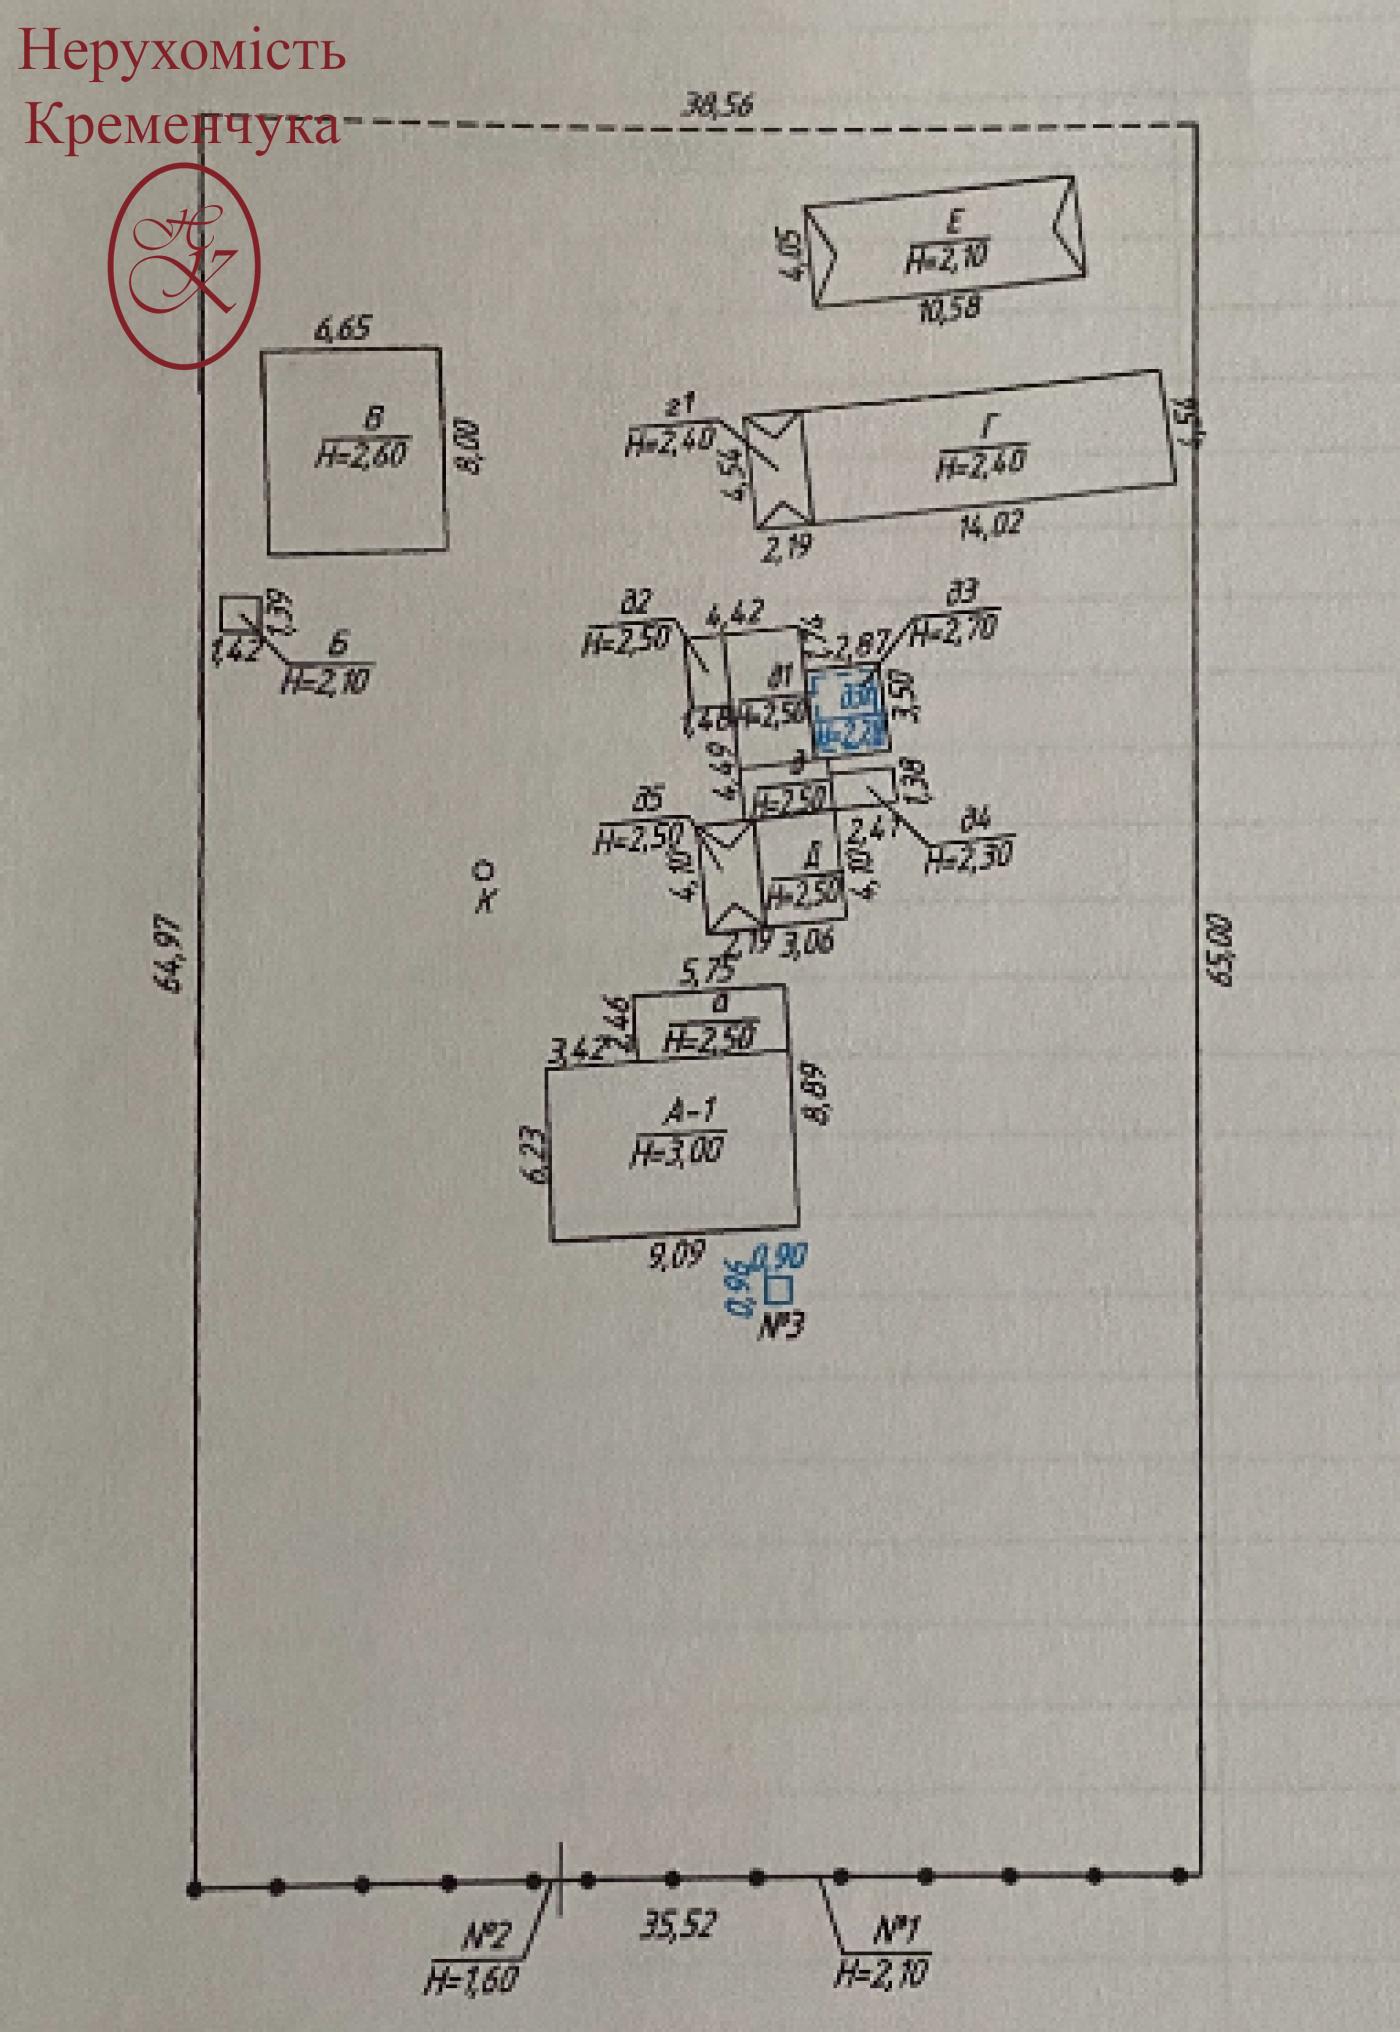 Нерухомість
Кременчука
НК
38,56
4,05
Е
Н=2,10
10,58
6,65
В
Н=2,60
8,00
г1
Н=2,40
4,54
2,19
Г
Н=2,40
14,02
4,54
1,39
1,42
Б
Н=2,10
д2
Н=2,50
4,42
д3
Н=2,70
2,87
3,50
д1
Н=2,50
1,48
4,49
д
Н=2,50
1,38
2,47
д4
Н=2,30
д5
Н=2,50
4,10
Д
Н=2,50
4,10
2,19
3,06
К
64,97
65,00
5,75
2,46
а
Н=2,50
3,42
А-1
Н=3,00
8,89
6,23
9,09
0,90
0,96
№3
35,52
№2
Н=1,60
№1
Н=2,10